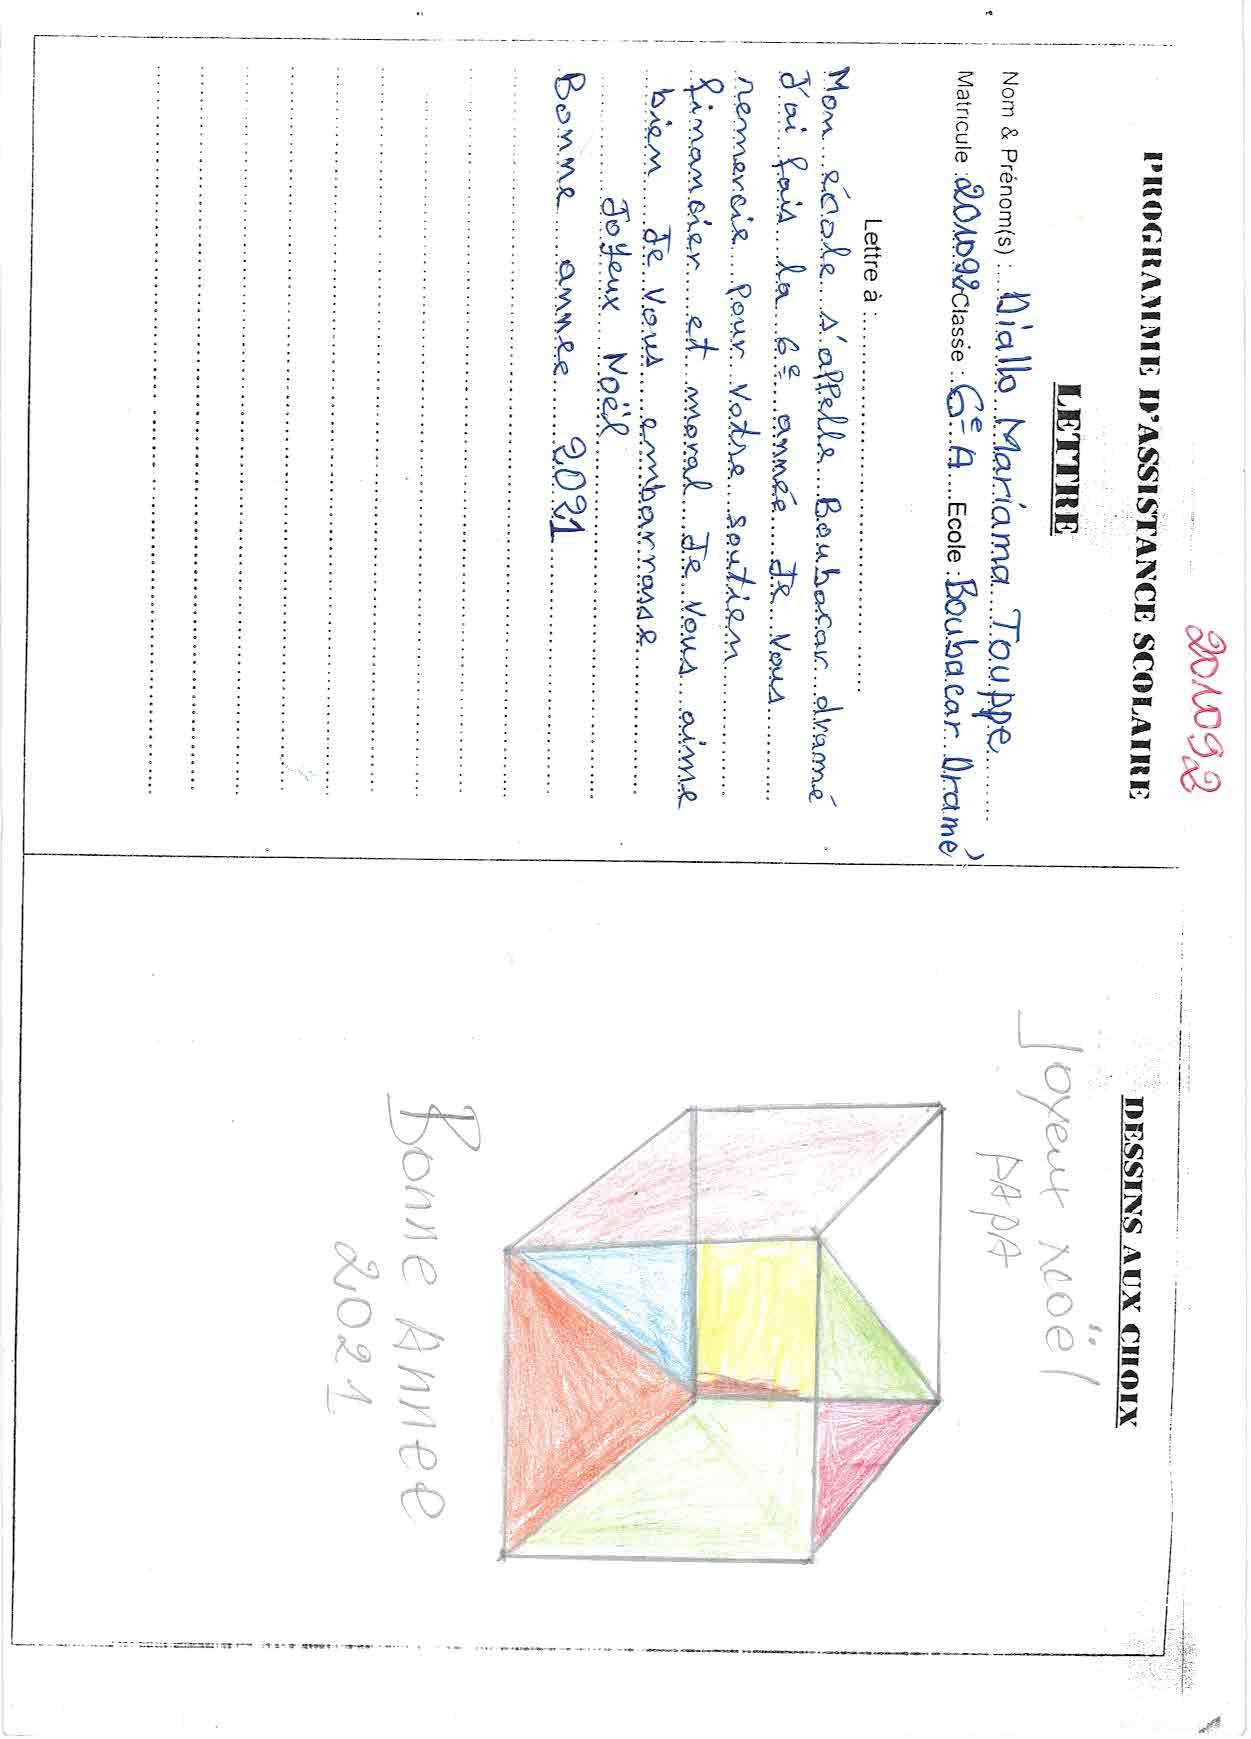 201092
PROGRAMME D'ASSISTANCE SCOLAIRE
LETTRE
Nom & Prénom(s) : Diallo Mariama Touppe
Matricule : 201092 Classe : 6e A Ecole : Boubacar Dramé
Lettre à :
Mon école s'appelle Boubacar dramé
J'ai fais la 6e année Je Vous
remercie pour Votre soutien
financier et moral Je Vous aime
bien Je Vous embarrasse
Joyeux Noël
Bonne année 2021
DESSINS AUX CHOIX
Joyeux NOËl
PAPA
Bonne Année
2021